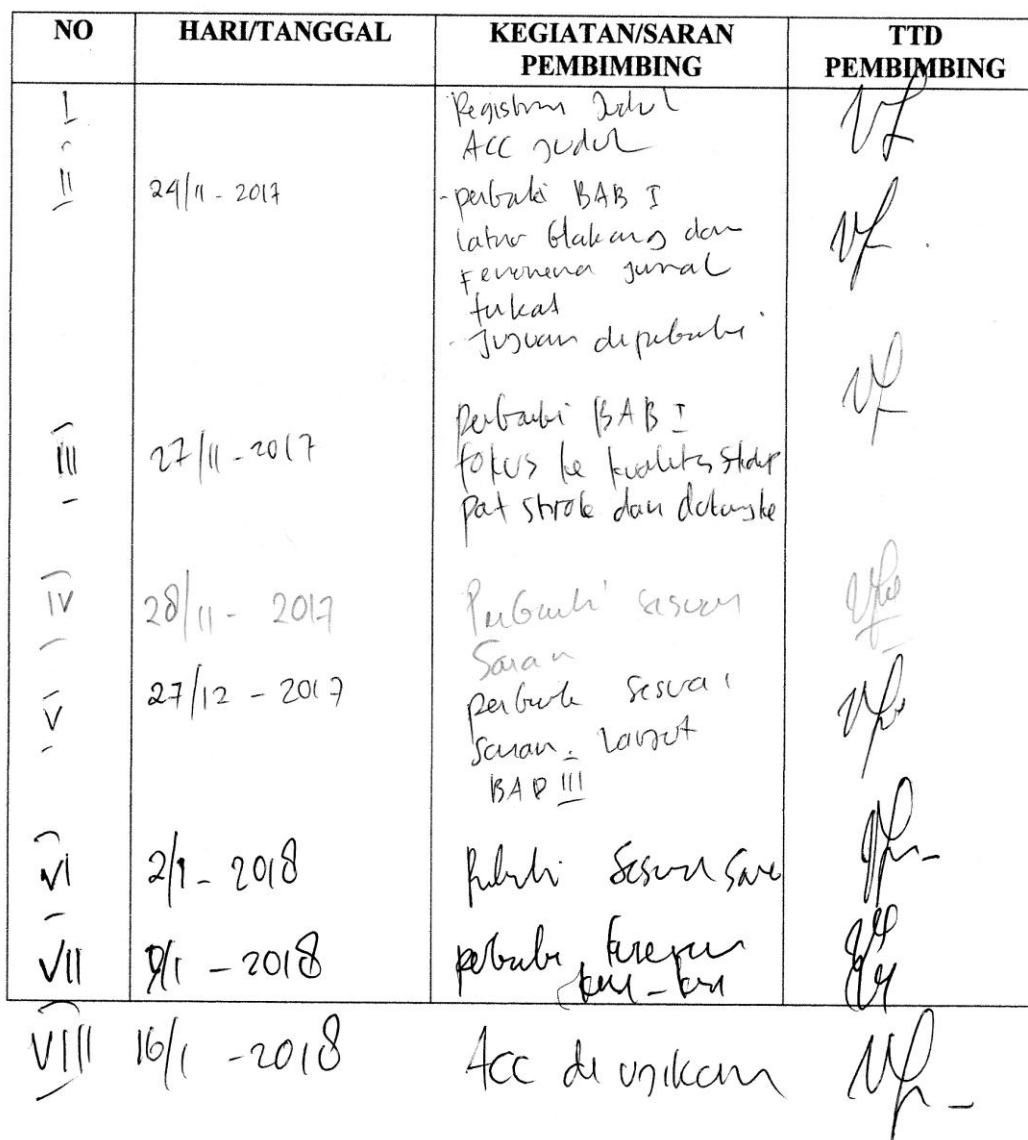 NO HARI/TANGGAL KEGIATAN/SARAN PEMBIMBING TTD PEMBIMBING
I Registrasi Judul
ACC Judul
II 24/11 - 2017 - perbaiki BAB I
latar blakang dan
Fenomena jurnal
- Tujuan diperbaiki
III 27/11 - 2017 perbaiki BAB I
fokus ke kualitas hidup
pat stroke dan
IV 28/11 - 2017 Perbaiki sesuai
Saran
V 27/12 - 2017 perbaiki sesuai
saran. Lanjut
BAB III
VI 2/1 - 2018 Perbaiki sesuai
VII 9/1 - 2018 perbaiki
VIII 16/1 - 2018 Acc di ujikan